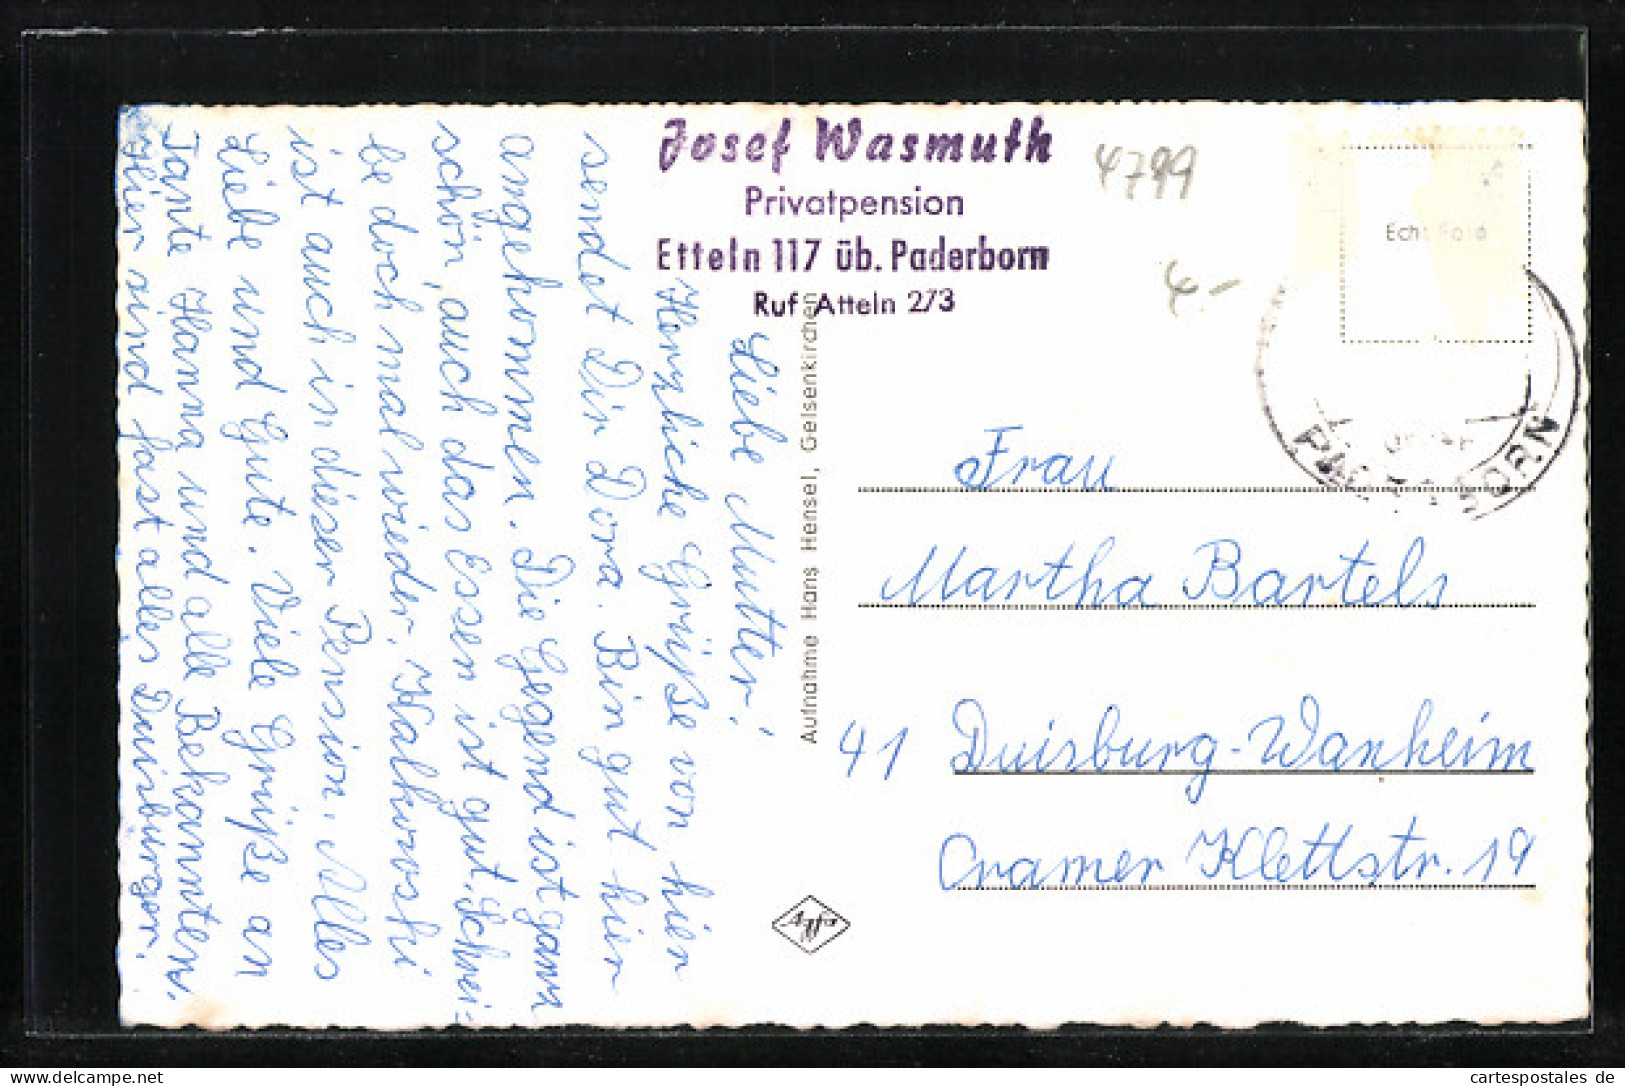 Josef Wasmuth
Privatpension
Etteln 117 üb. Paderborn
Ruf Atteln 273
4799
4.-
Echt Foto
PADERBORN
Liebe Mutter!
Herzliche Grüße von hier
sendet Dir Dora. Bin gut hier
angekommen. Die Gegend ist ganz
schön, auch das Essen ist gut. Schrei=
be doch mal wieder.
ist auch in dieser Pension. Alles
Liebe und Gute. Viele Grüße an
Tante Hanna und alle Bekannten.
Hier sind fast alles Duisburger.
Aufnahme Hans Hensel, Gelsenkirchen
Agfa
Frau
Martha Bartels
41 Duisburg-Wanheim
Cramer Klettstr. 19
cartespostales de